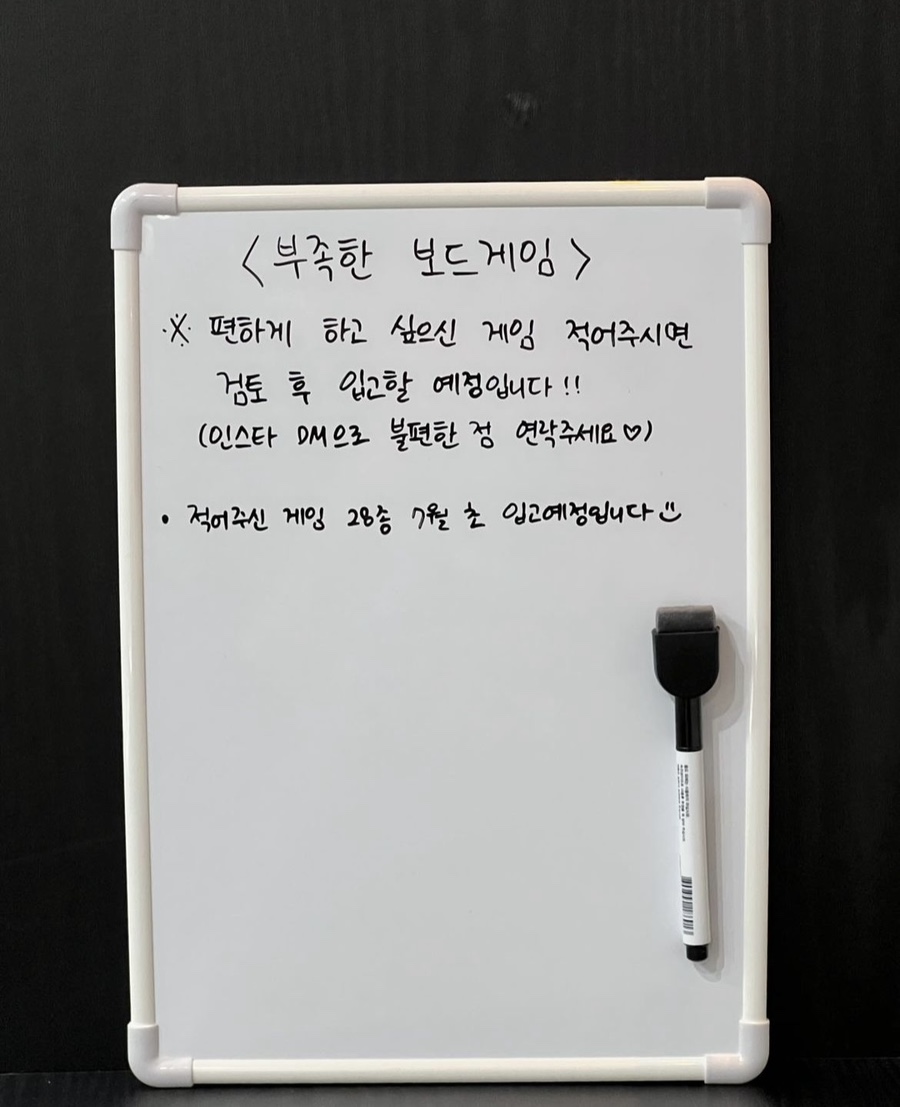 <부족한 보드게임>
※ 편하게 하고 싶으신 게임 적어주시면
검토 후 입고할 예정입니다!!
(인스타 DM으로 불편한 점 연락주세요♡)
• 적어주신 게임 28종 7월 초 입고예정입니다